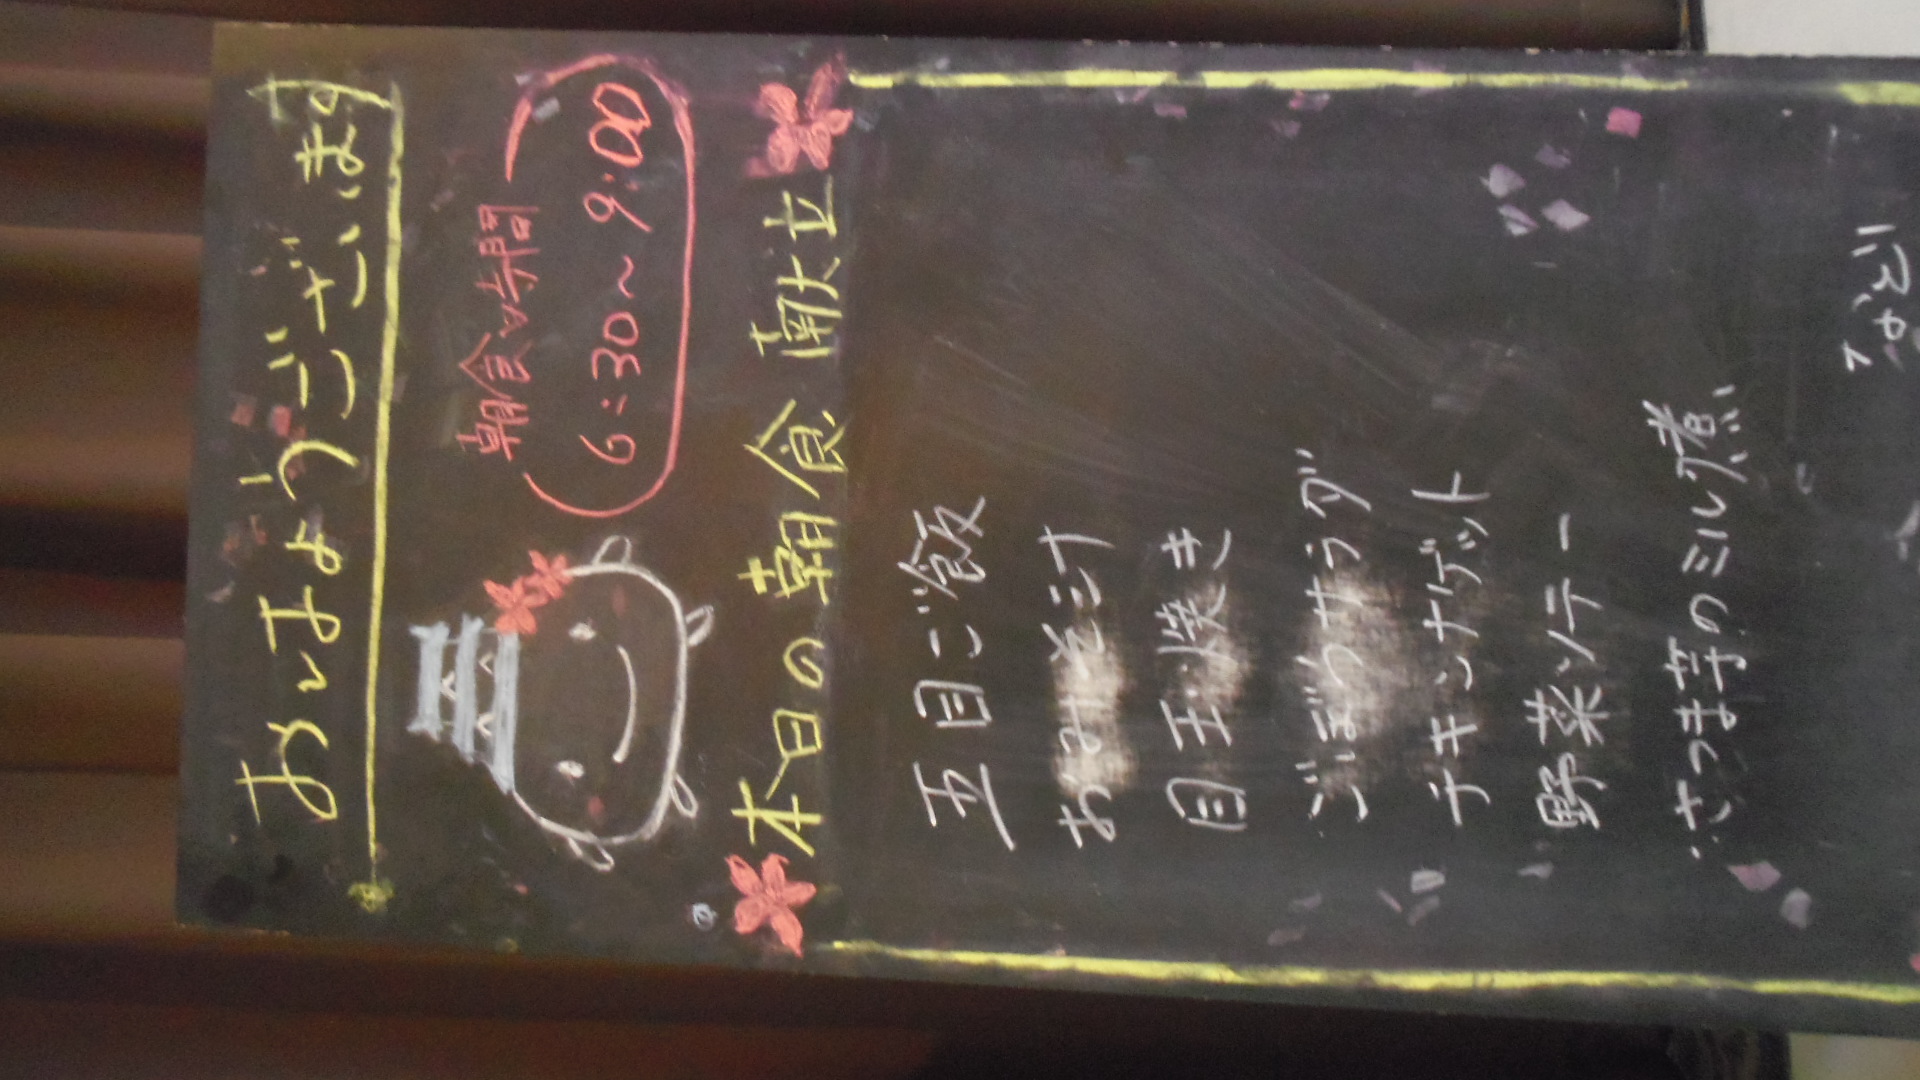 おはようございます
朝食時間
6:30～9:00
本日の朝食献立
五目ご飯
おみそ汁
目玉焼き
ごぼうサラダ
チキンナゲット
野菜ソテー
さつま芋のミルク煮
など